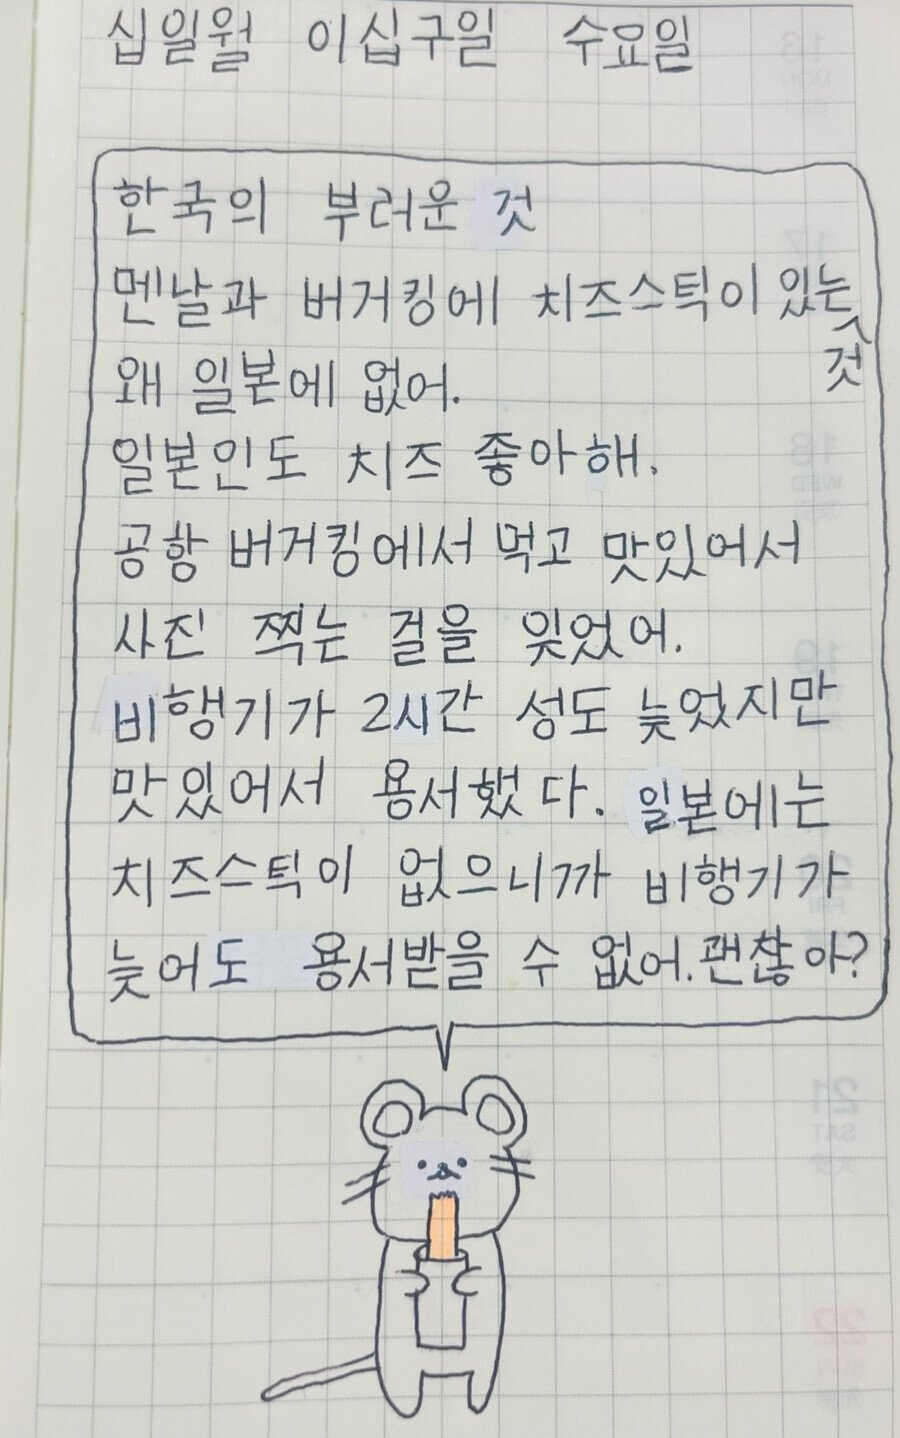 십일월 이십구일 수요일
한국의 부러운 것
멘날과 버거킹에 치즈스틱이 있는
것
왜 일본에 없어.
일본인도 치즈 좋아해.
공항 버거킹에서 먹고 맛있어서
사진 찍는 걸을 잊었어.
비행기가 2시간 성도 늦었지만
맛있어서 용서했다. 일본에는
치즈스틱이 없으니까 비행기가
늦어도 용서받을 수 없어.괜찮아?
21
SAT
22
SUN